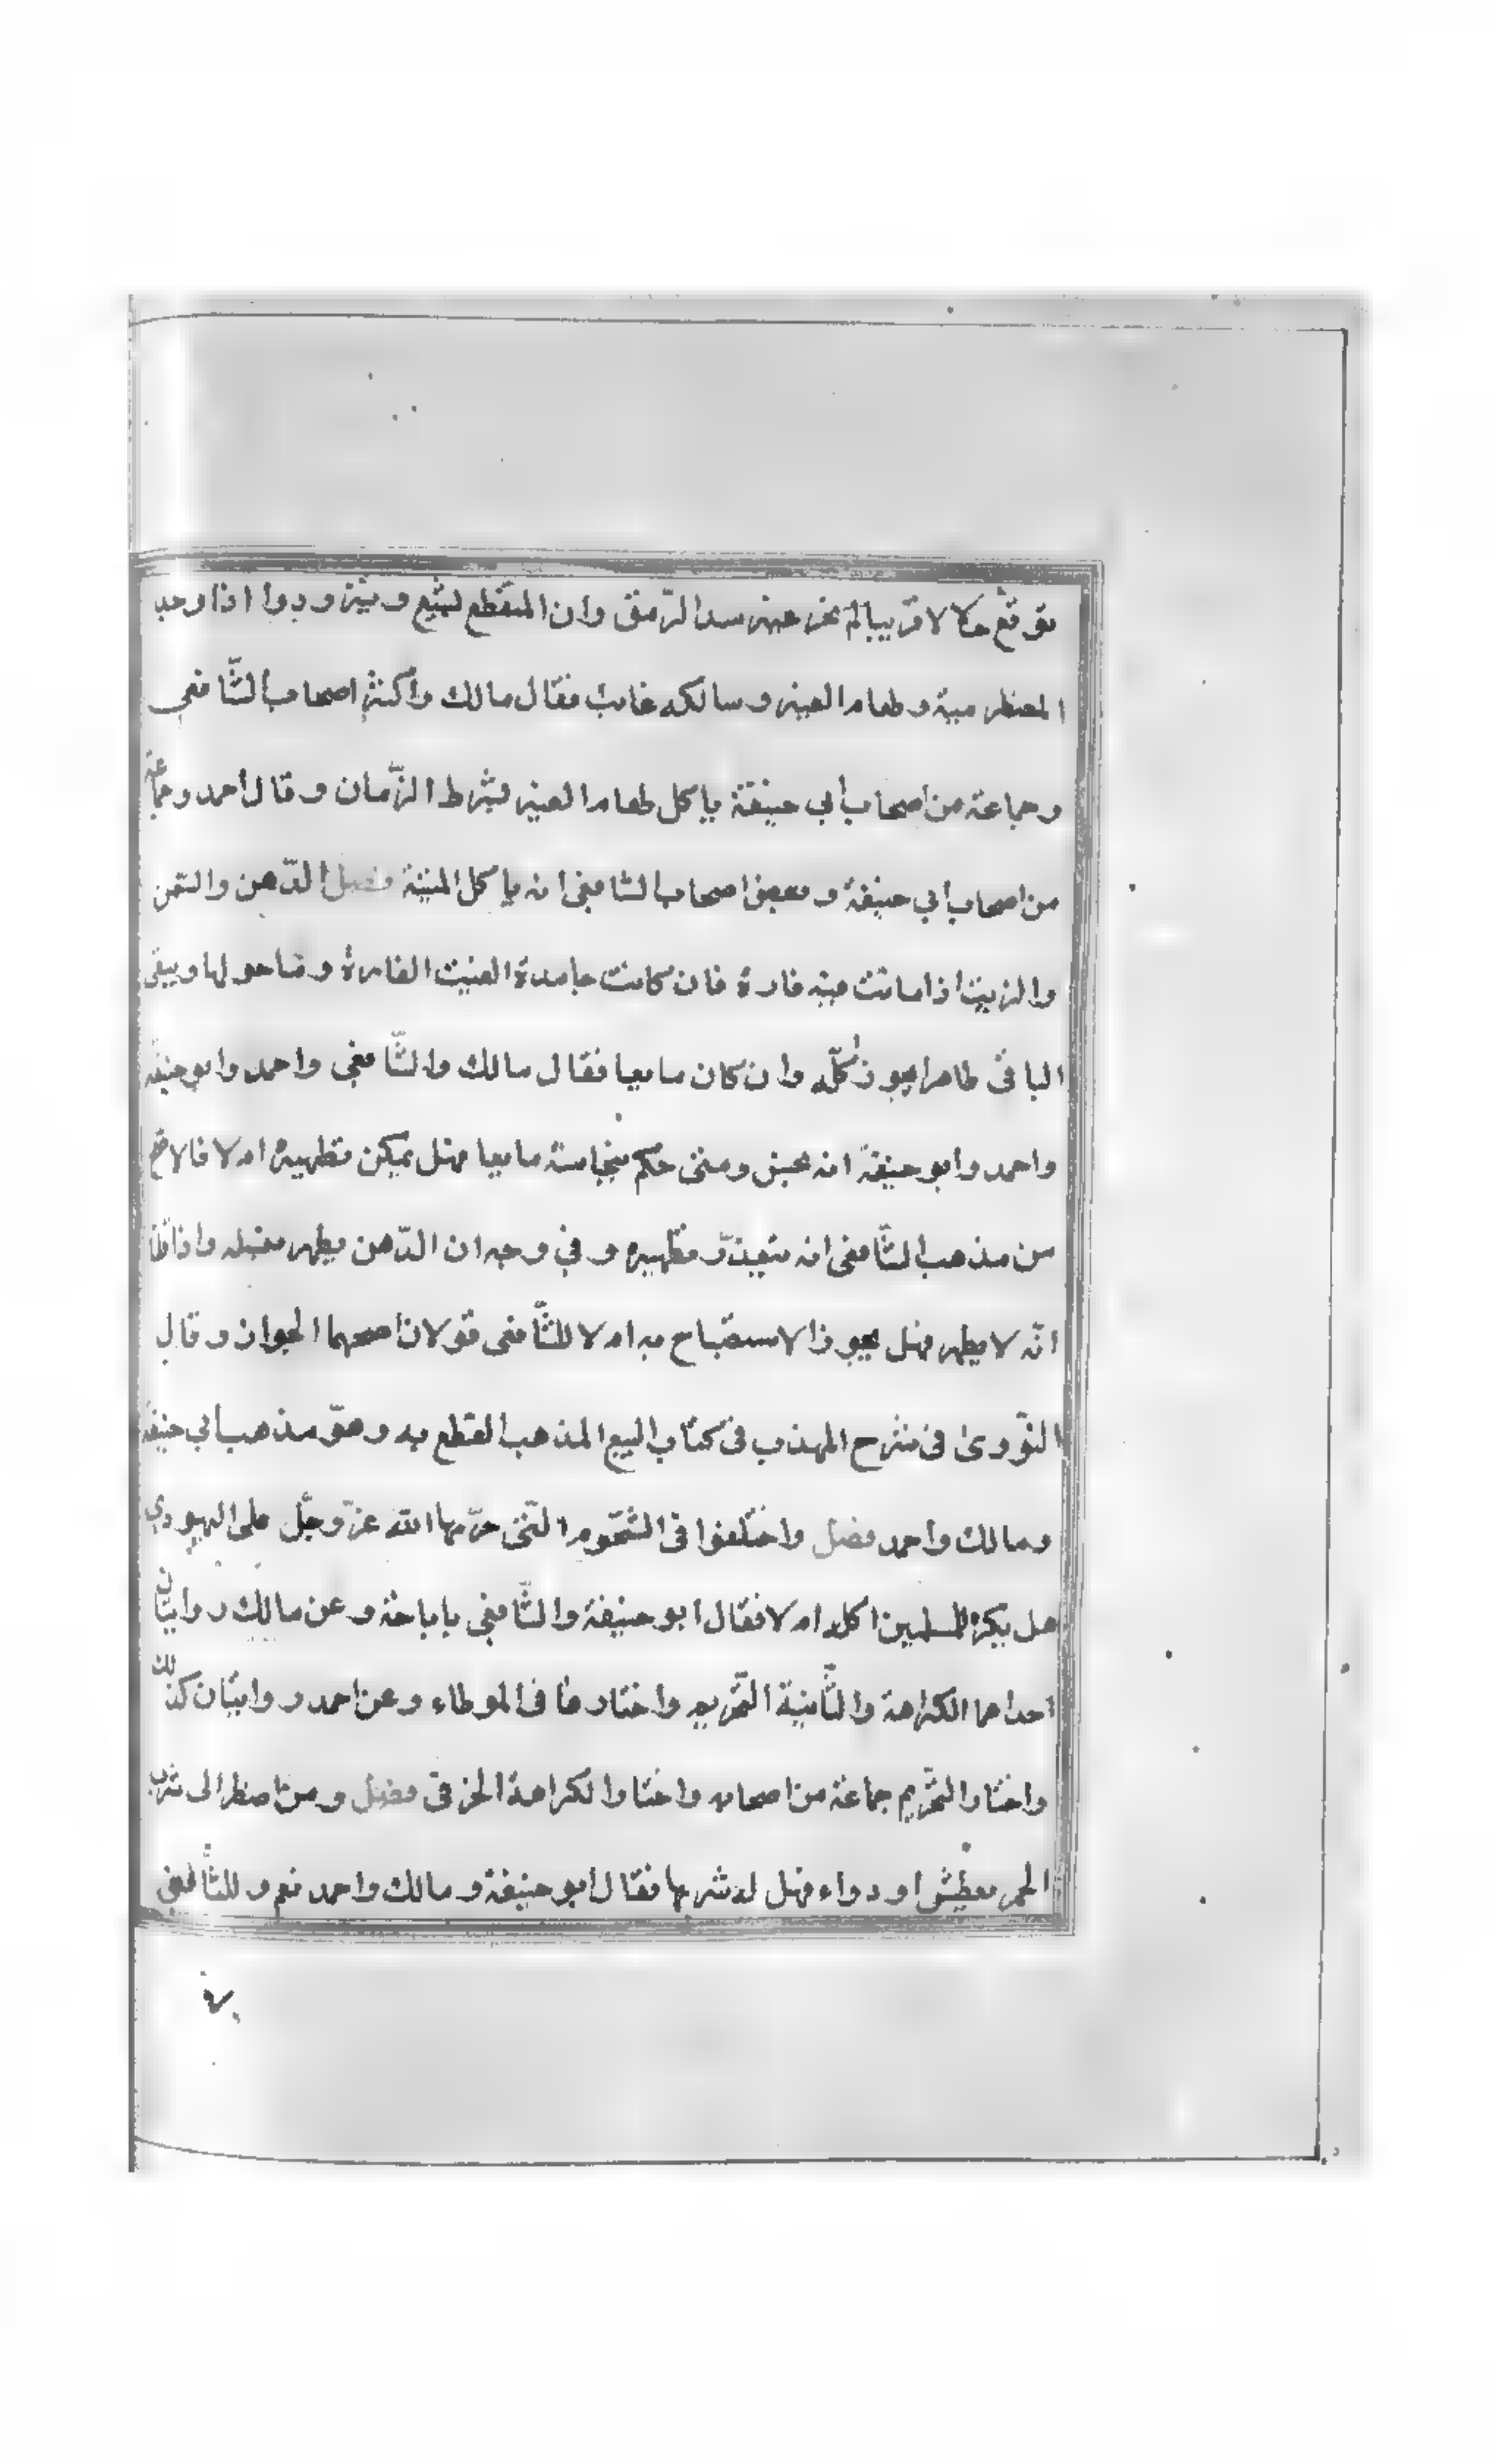 توقع حلالا قريبا لم يجز غير سد الرّمق وان المنقطع لشبع ويتزود واذا وجد
المضطر ميتة وطعام الغير ومالكه غائب فقال مالك وأكثر اصحاب الشّافعي
وجماعة من اصحاب أبي حنيفة يأكل طعام الغير بشرط الزّمان وقال احمد وجماعة
من اصحاب ابي حنيفة وبعض اصحاب الشافعي انه يأكل الميتة فصل الدّهن والسّمن
والزيت اذا ماتت فيه فارة فان كانت جامدة القيت الفارة وما حولها ويبقى
الباقى طاهرا يجوز أكلّه وان كان مايعا فقال مالك والشّافعي واحمد وابو حنيفة
واحمد وابو حنيفة انه نجس ومتى حكم بنجاسته مايعا فهل يمكن تطهيره ام لا فالاصح
من مذهب الشّافعى انه يتعذّر تطهيره وفي وجه ان الدّهن يطهر بغسله واذا قلنا
انّه لا يطهر فهل يجوز الاستصباح به ام لا للشّافعى قولان اصحهما الجواز وقال
النّووى فى شرح المهذب فى كتاب البيع المذهب القطع به وهو مذهب أبي حنيفة
ومالك واحمد فصل واختلفوا فى الشّحوم الّتى حرّمها الله عزّ وجلّ على اليهودي
هل يكره للمسلمين اكله ام لا فقال ابو حنيفة والشّافعي باباحته وعن مالك روايتان
احداهما الكراهة والثّانية التّحريم واختارها فى الموطاء وعن احمد روايتان كذلك
واختار التّحريم جماعة من اصحابه واختار الكراهة الخرقى فصل ومن اضطر الى شرب
الخمر بعطش او دواء فهل له شربها فقال ابو حنيفة ومالك واحمد نعم وللشّافعي